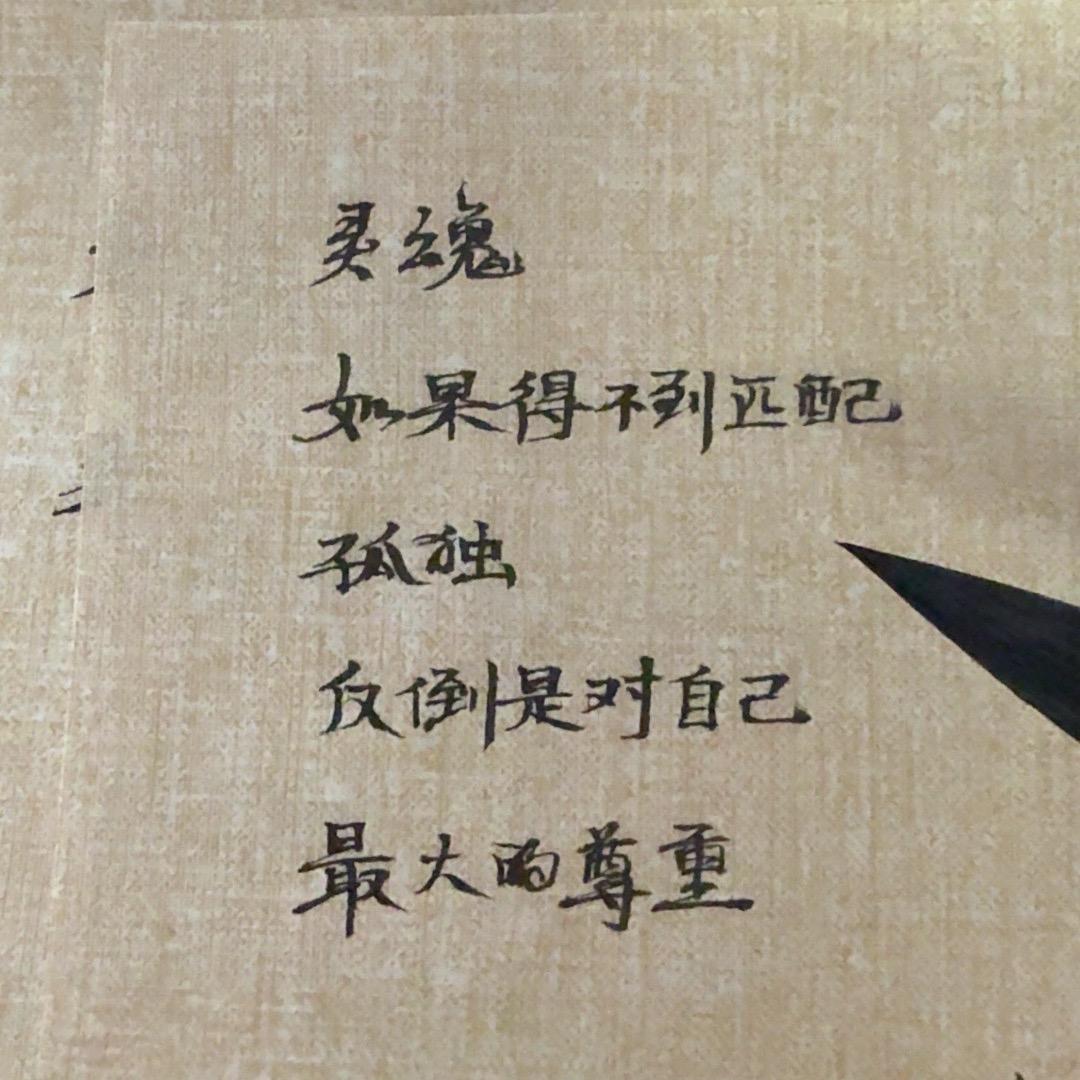 灵魂
如果得不到匹配
孤独
反倒是对自己
最大的尊重